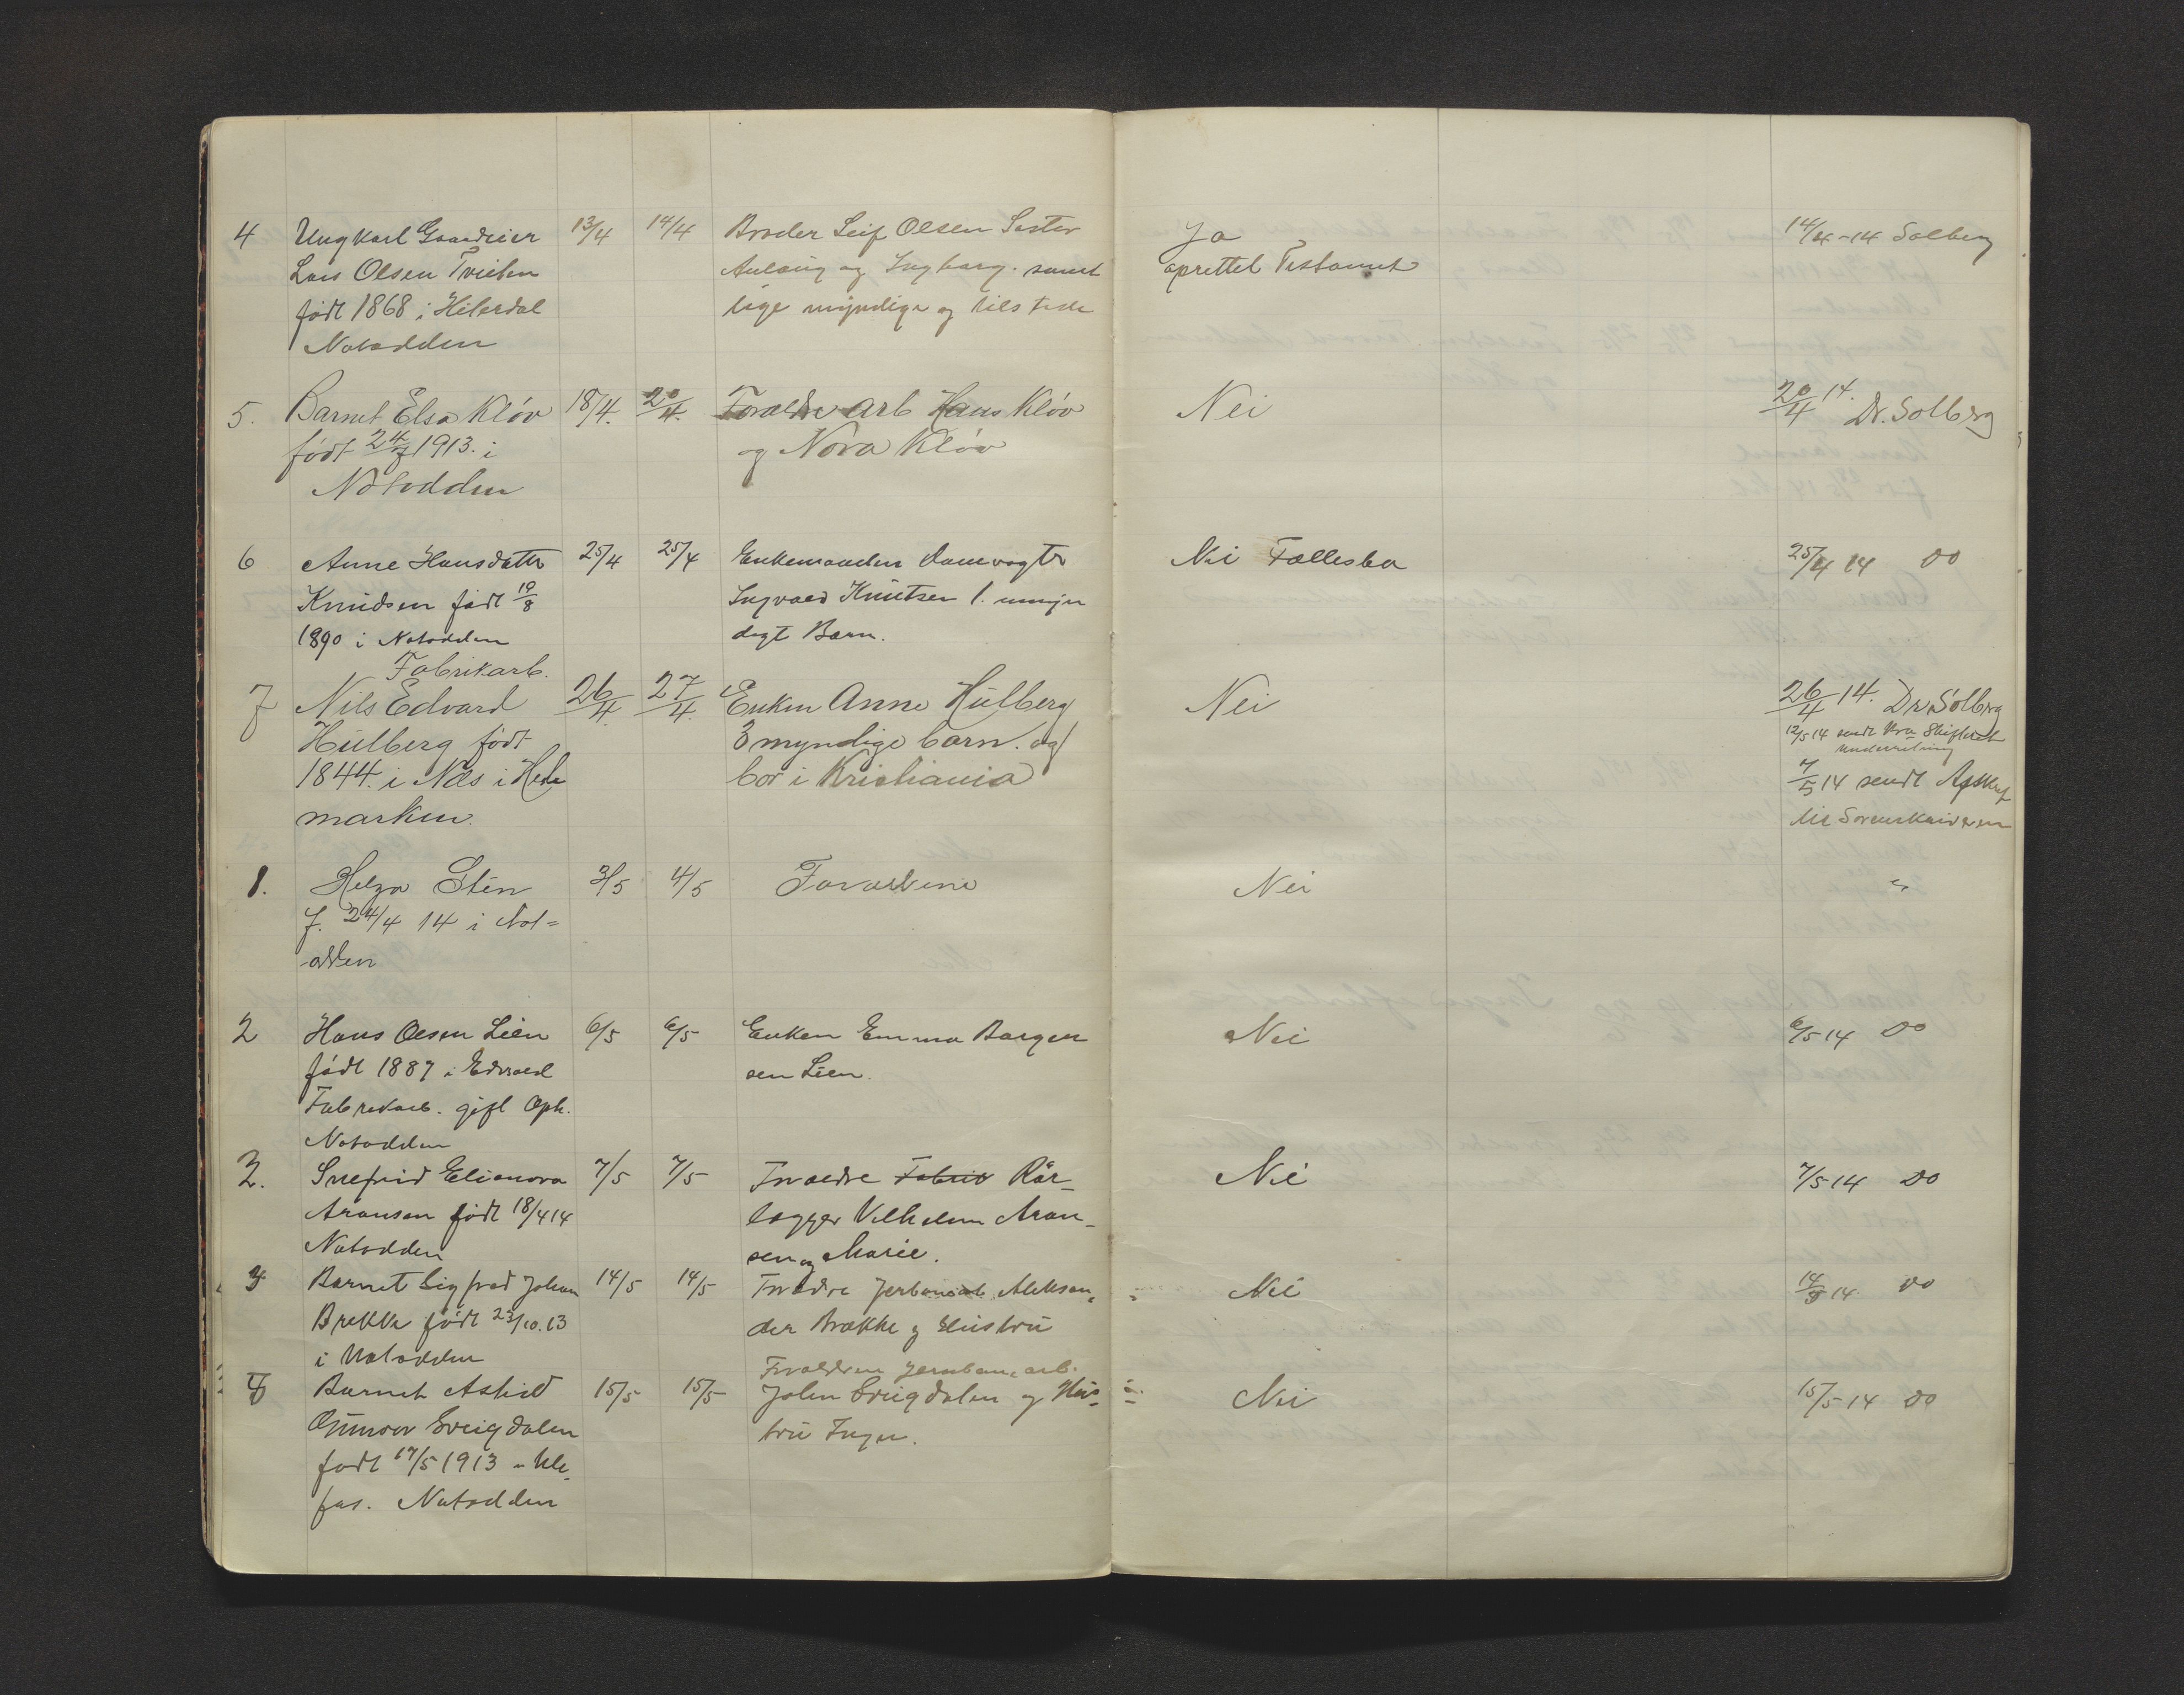 4 Ungkarl Gaardeier 13/4 14/4 Broder Leif Olsen Søster Ja 14/4-14 Solberg
Lars Olsen Tveiten Aulaug og Ingbarg. samt oprettet Testament
født 1868 i Hiterdal lige myndige og tilstede
Notodden
5. Barnet Elsa Kløv 18/4. 20/4. Forældre Arb Hans Kløv Nei 20/4 14. Dr. Solberg
født 24/7 1913. i og Nora Kløv
Notodden
6 Anne Hansdatter 25/4 25/4 Enkemanden Damvogter Nei Fællesbo 25/4 14 Do
Knudsen født 10/8 Ingvald Knutsen 1. umyn
1890 i Notodden digt Barn.
Fabrikarb.
7 Nils Edvard 26/4. 27/4. Enken Anne Hulberg Nei 26/4 14. Dr. Solberg
Hulberg født 3 myndige barn. og 12/5 14 sendt Skifteret
underretning
1844. i Næs i Hede bor i Kristiania 7/5 14 sendt Afskrf
marken. til Sorenskriveren
1. Helga Stén 3/5 4/5 Forældrene Nei "
f. 24/4 14 i Not=
odden
2 Hans Olsen Lien 6/5 6/5 Enken Emma Bargen Nei 6/5 14 Do
født 1887 i Edvold sen Lien.
Fabrikarb. gift Oph.
Notodden
3. Snefrid Elianora 7/5 7/5 Forældre Fabrik Rør- Nei 7/5 14 Do
Aronsen født 18/4 14 lægger Vilhelm Aron-
Notodden sen og Marie.
4 Barnet Sigfred Johan 14/5 14/5 Forældre Jerbanearb Aleksan- Nei 14/5 14. Do
Brekke født 23/10.13 der Brække og Hustru
i Notodden
Forældrene Jernbanearb.
5 Barnet Astrid 15/5 15/5 John Sveigdalen og Hus- Nei 15/5-14 Do
Gunvor Sveigdalen tru Inga.
født 17/5 1913 i Kle-
fos. Notodden